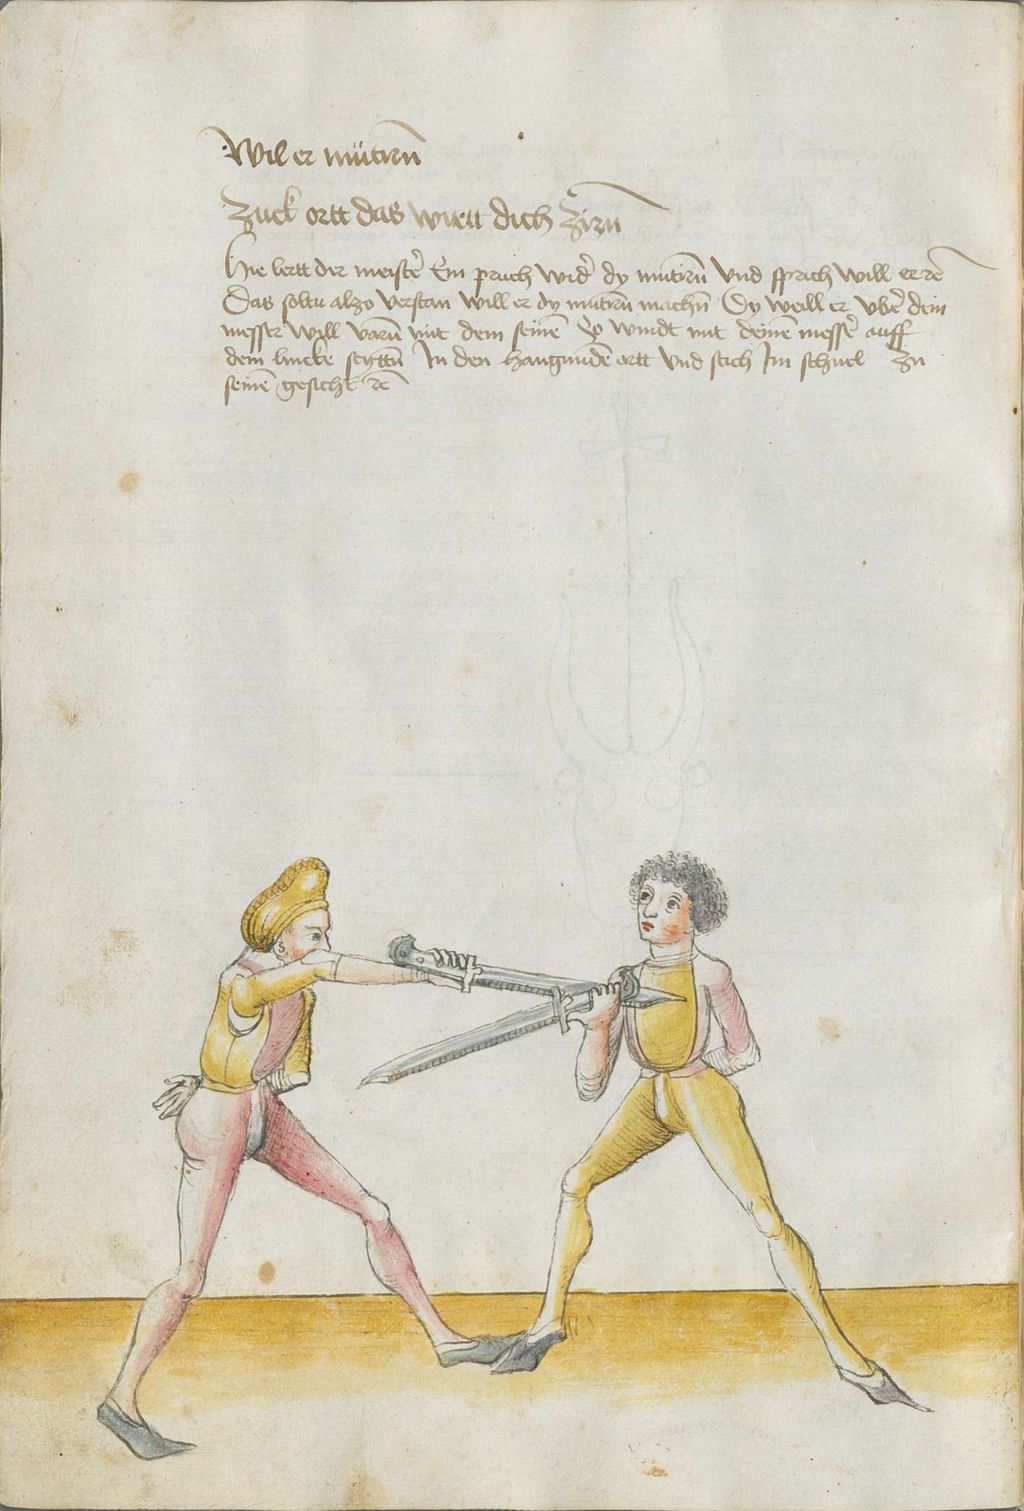 Wil er mütirn̄
Zuck ortt das wirtt dich Zirn̄
Hie lertt der meist̾ Ein pruch wid̾ dy mutirn̄ Vnd sprich will er rc̄
Das soltu alzo verstan will er dy mutirn̄ machn̄ Dy weill er vbe̾ dein
messer will varn̄ mit dem seinē So windt mit deinē mess̾ auff
dem lincke seyttn̄ In den hangundē ortt Vnd stich Im schnel Zu
seinē gesicht rc̄